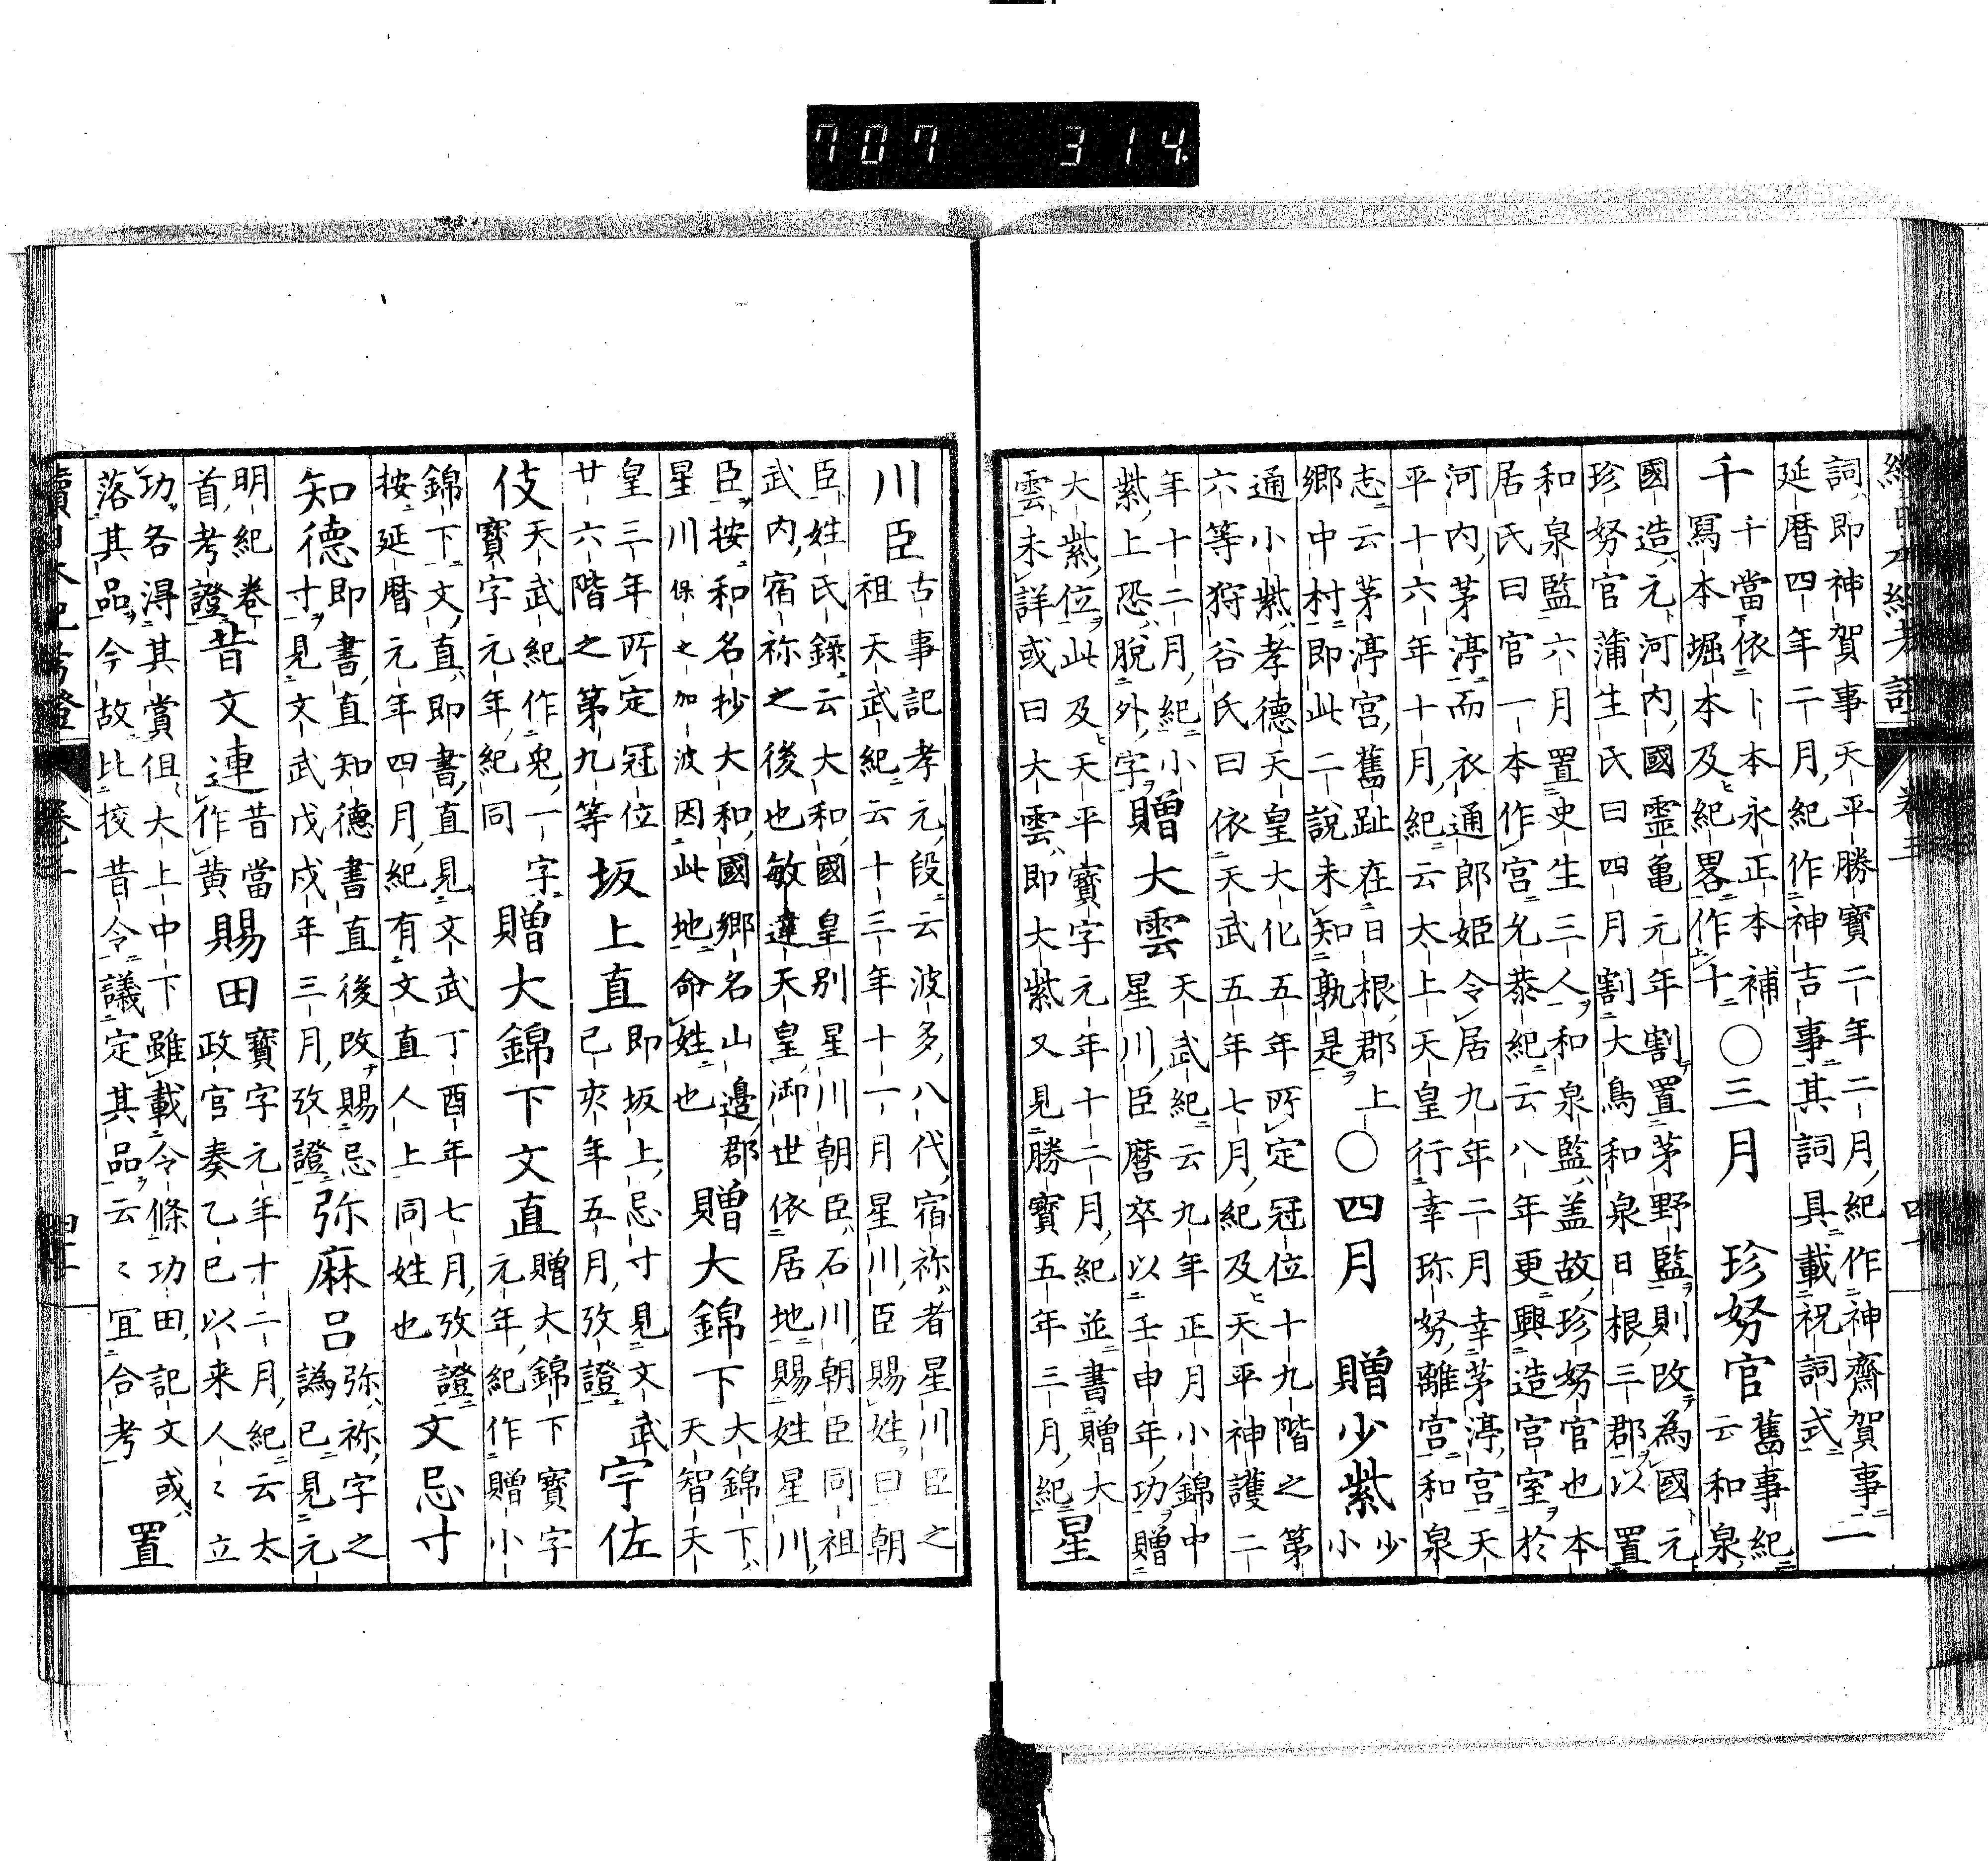 707 314
續日本紀考證 卷三 四十
詞、即神賀事天平勝寶二年二月、紀作神齋賀事
延暦四年二月、紀作神吉事其詞具載祝詞式 二
千 千當依卜本永正本補
寫本堀本及紀畧作十 〇三月 珍努官 舊事紀
云和泉
國造、元河內、國霊亀元年割置茅野監則改為國元
珍努官蒲生氏曰四月割大鳥和泉日根、三郡以置
和泉監六月置史生三人和泉監、盖故珍努官也本
居氏曰官一本作宮允恭紀云八年更興造宮室於
河內、茅渟而衣通郎姫令居九年二月幸茅渟、宮天
平十六年十月、紀云太上天皇行幸珎努、離宮和泉
志云茅渟宮、舊趾在日根、郡上
鄉中村即此二說未知孰是 〇四月 贈少紫 少
小
通小紫、孝德天皇大化五年所定冠位十九階之第
六等狩谷氏曰依天武五年七月、紀及天平神護二
年十二月、紀小
紫、上恐、脫外、字 贈大雲 天武紀云九年正月小錦中
星川、臣麿卒以壬申年、功贈
大紫、位此及天平寶字元年十二月、紀並書贈大
雲未詳或曰大雲、即大紫又見勝寶五年三月、紀 星
川臣 古事記孝元、段云波多、八代、宿祢、者星川臣之
祖天武紀云十三年十一月星川、臣賜姓曰朝
臣姓氏錄云大和、國皇別星川朝臣、石川、朝臣同祖
武內、宿祢之後也敏達天皇、御世依居地賜姓星川、
臣按和名抄大和、國鄉名山邊、郡
星川保之加波因此地命姓也 贈大錦下 大錦下、
天智天
皇三年所定冠位
廿六階之第九等 坂上直 即坂上、忌寸見文武
己亥年五月、攷證 宇佐
伎 天武紀作兔、一字
寶字元年、紀同 贈大錦下文直 贈大錦下寶字
元年、紀作贈小
錦下文、直、即書、直見文武丁酉年七月、攷證
按延暦元年四月、紀有文直人上同姓也 文忌寸
知德 即書、直知德書直後改賜忌
寸見文武戊戌年三月、攷證 弥麻呂 弥、祢、字之
譌已見元
明紀卷
首、考證 昔文連 昔當
作黃 賜田 寶字元年十二月、紀云太
政官奏乙巳以来人々立
功各淂其賞但、大上中下雖載令條功田、記文或、
落其品今故比挍昔令議定其品云々宜合考 置
續日本紀考證 卷三